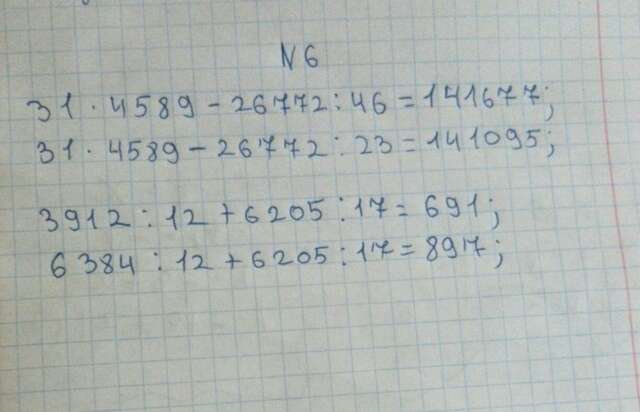 N 6
31 · 4589 - 26772 : 46 = 141677;
31 · 4589 - 26772 : 23 = 141095;
3912 : 12 + 6205 : 17 = 691;
6384 : 12 + 6205 : 17 = 897;